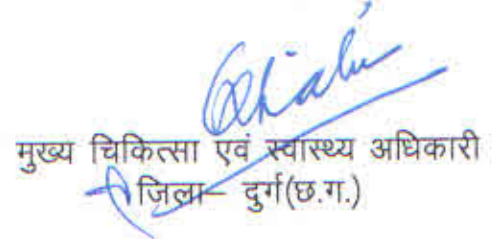 मुख्य चिकित्सा एवं स्वास्थ्य अधिकारी
जिला– दुर्ग(छ.ग.)